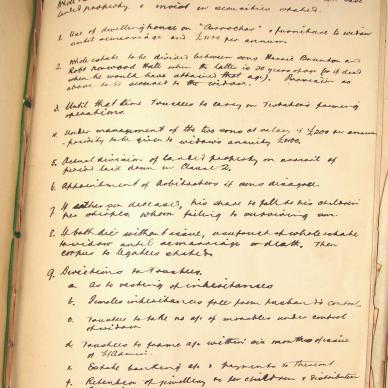 landed property & invest in securities stated.
1. Use of dwelling house on "Arrochar" & furniture to widow
until remarriage and £1100 per annum.
2. Whole estate to be divided between sons Harrie Brandon and
Robt Norwood Hall when the latter is 30 years of age (or if dead
when he would have attained that age). Provision as
above to be secured to the widow.
3. Until that time Trustees to carry on Testator's farming
operations.
4. Under management of the two sons at salary of £200 per annum
- priority to be given to widow's annuity £1100.
5. Actual division of landed property on arrival of
period laid down in Clause 2.
6. Appointment of Arbitrators if sons disagree.
7. If either son deceased, his share to fall to his children
per stirpes, whom failing to surviving son.
8. If both die without issue, usufruct of whole estate
to widow until remarriage or death. Then
corpus to legatees stated.
9. Directions to Trustees.
a. As to vesting of inheritances
b. Females inheritances free from husband's control
c. Trustees to take no age of movables under control
of widow
d. Trustees to frame age within six months of issue
of L/Admin.
e. Estate banking a/c & payments to
f. Retention of jewellery to her children & distribution